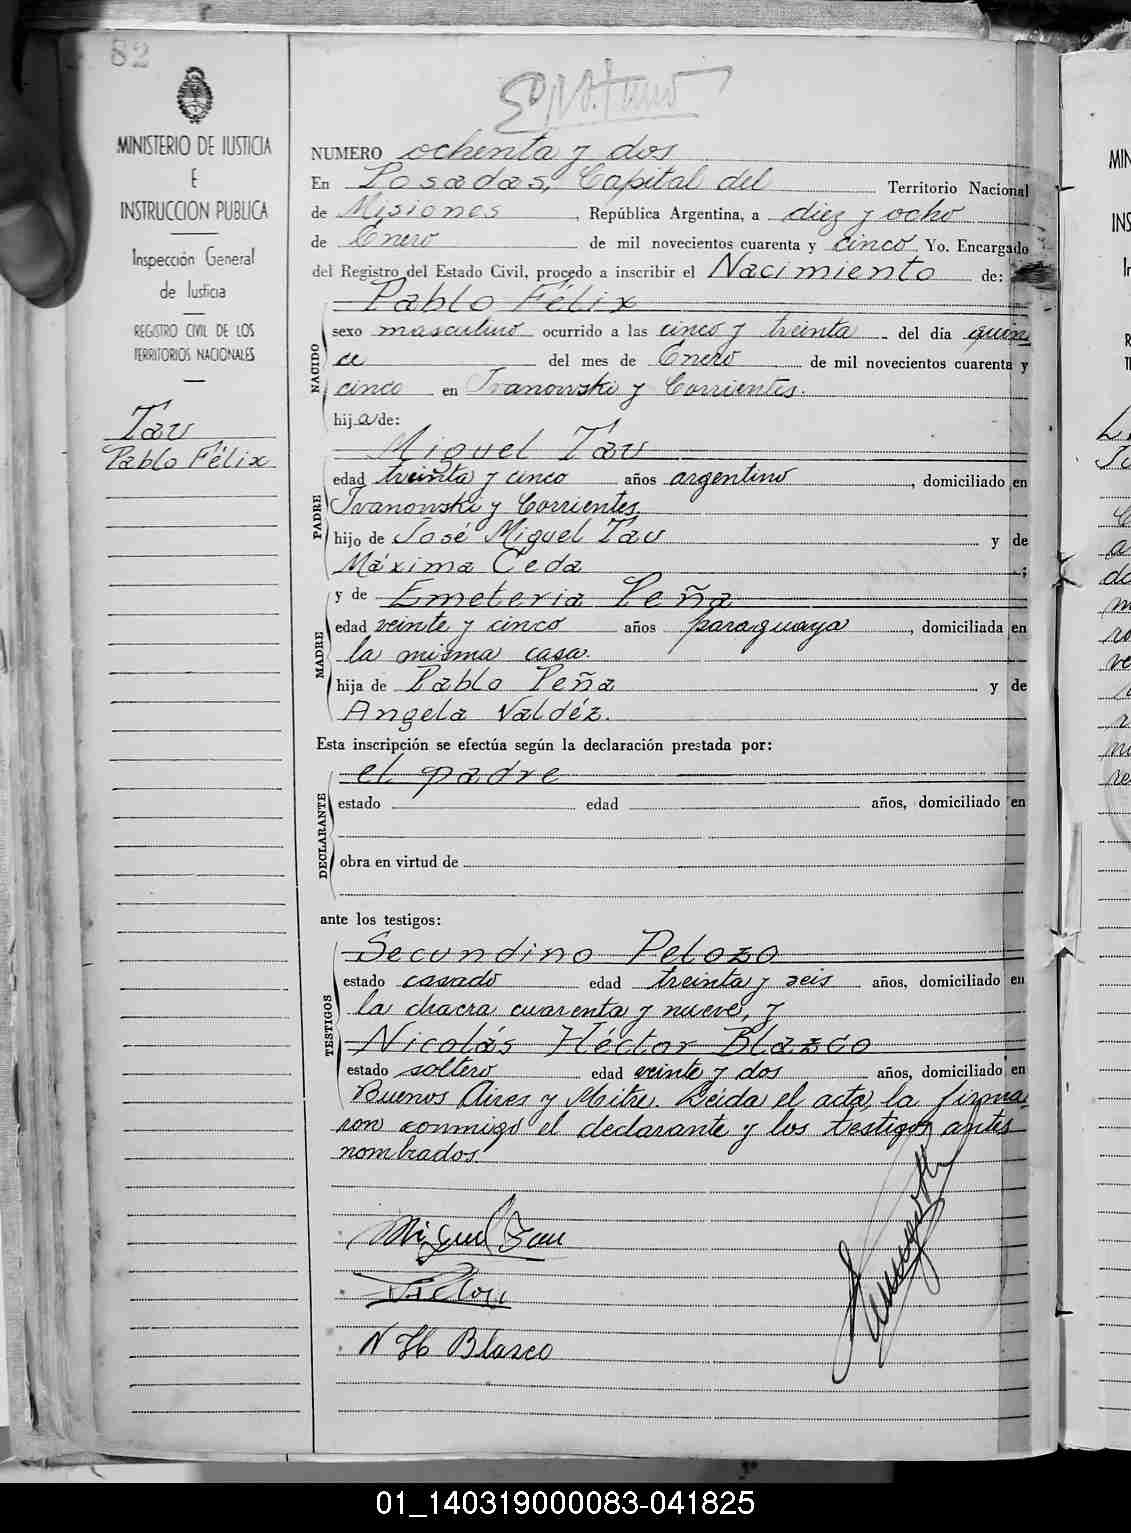 82
MINISTERIO DE JUSTICIA
E
INSTRUCCION PUBLICA
Inspección General
de Justicia
REGISTRO CIVIL DE LOS
TERRITORIOS NACIONALES
Tau
Pablo Félix
NUMERO ochenta y dos
En Posadas, Capital del Territorio Nacional
de Misiones, República Argentina, a diez y ocho
de Enero de mil novecientos cuarenta y cinco Yo. Encargado
del Registro del Estado Civil, procedo a inscribir el Nacimiento de:
NACIDO
Pablo Félix
sexo masculino ocurrido a las cinco y treinta del día quin
ce del mes de Enero de mil novecientos cuarenta y
cinco en Ivanowski y Corrientes.
hijo de:
PADRE
Miguel Tau
edad treinta y cinco años argentino, domiciliado en
Ivanowski y Corrientes
hijo de José Miguel Tau y de
Máxima Ceda;
MADRE
y de Emeteria Peña
edad veinte y cinco años paraguaya, domiciliada en
la misma casa.
hija de Pablo Peña y de
Angela Valdéz.
Esta inscripción se efectúa según la declaración prestada por:
DECLARANTE
el padre
estado edad años, domiciliado en
obra en virtud de
ante los testigos:
TESTIGOS
Secundino Pelozo
estado casado edad treinta y seis años, domiciliado en
la chacra cuarenta y nueve, y
Nicolás Héctor Blazco
estado soltero edad veinte y dos años, domiciliado en
Buenos Aires y Mitre. Leida el acta, la firma
ron conmigo el declarante y los testigos antes
nombrados.
Miguel Tau
N H Blasco
01_140319000083-041825